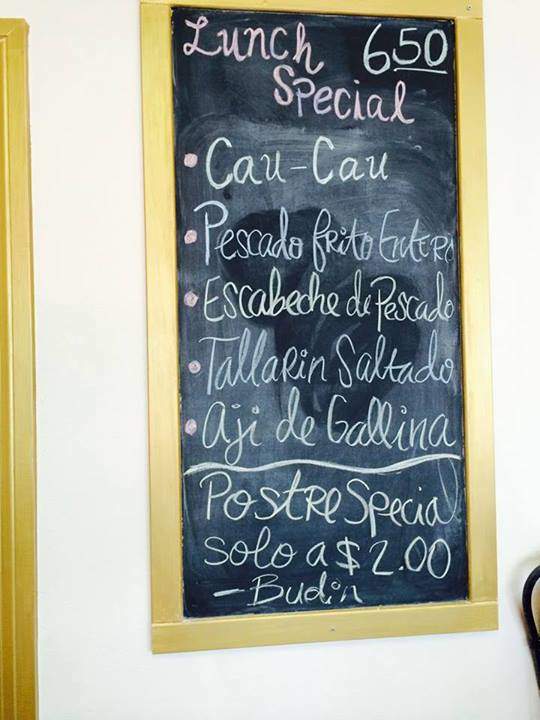 Lunch 650
Special
• Cau-Cau
• Pescado frito Entero
• Escabeche de Pescado
• Tallarin Saltado
• Aji de Gallina
Postre Special
solo a $2.00
- Budin